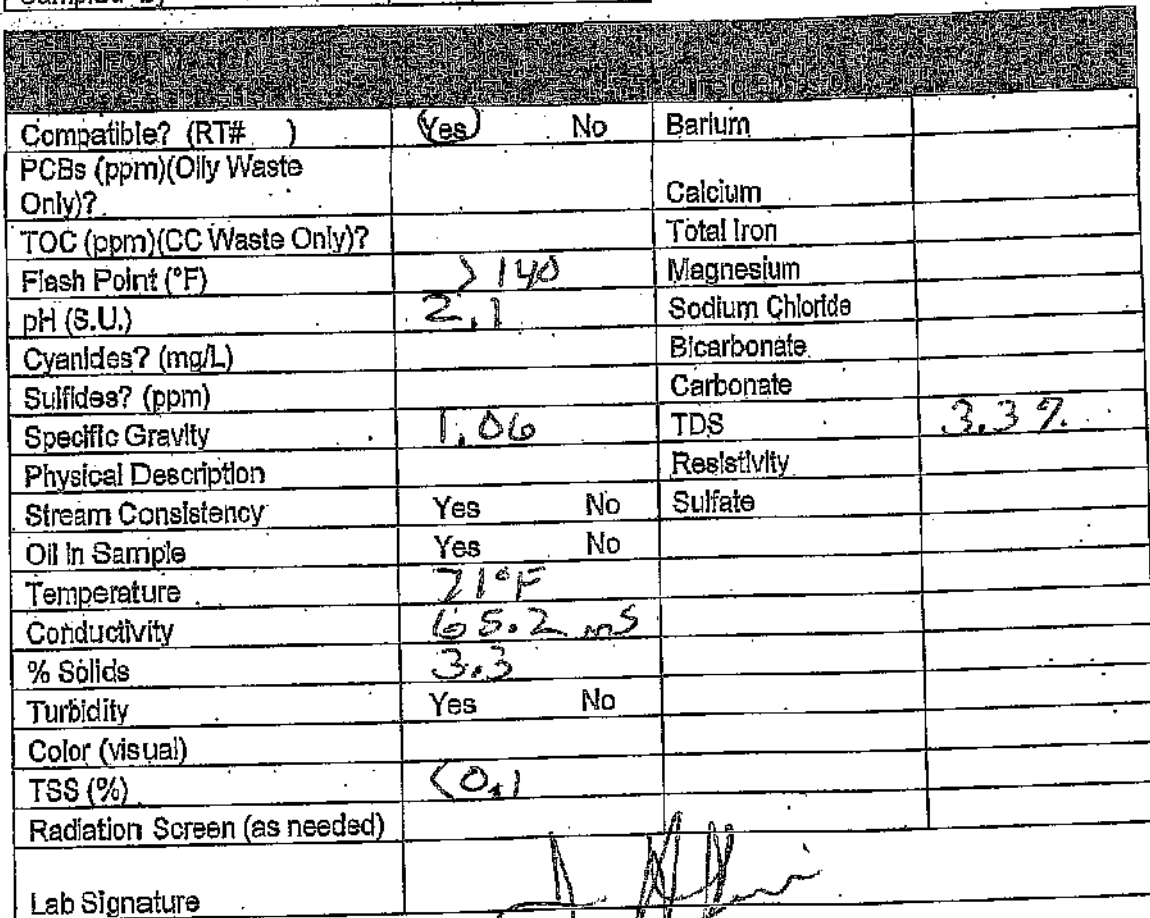 Sampled by
LAB INFORMATION
Compatible? (RT# ) Yes No Barium
PCBs (ppm)(Oily Waste
Only)? Calcium
TOC (ppm)(CC Waste Only)? Total Iron
Flash Point (°F) >140 Magnesium
pH (S.U.) 2.1 Sodium Chloride
Cyanides? (mg/L) Bicarbonate
Sulfides? (ppm) Carbonate
Specific Gravity 1.06 TDS 3.3%
Physical Description Resistivity
Stream Consistency Yes No Sulfate
Oil in Sample Yes No
Temperature 71°F
Conductivity 65.2 mS
% Solids 3.3
Turbidity Yes No
Color (visual)
TSS (%) <0.1
Radiation Screen (as needed)
Lab Signature